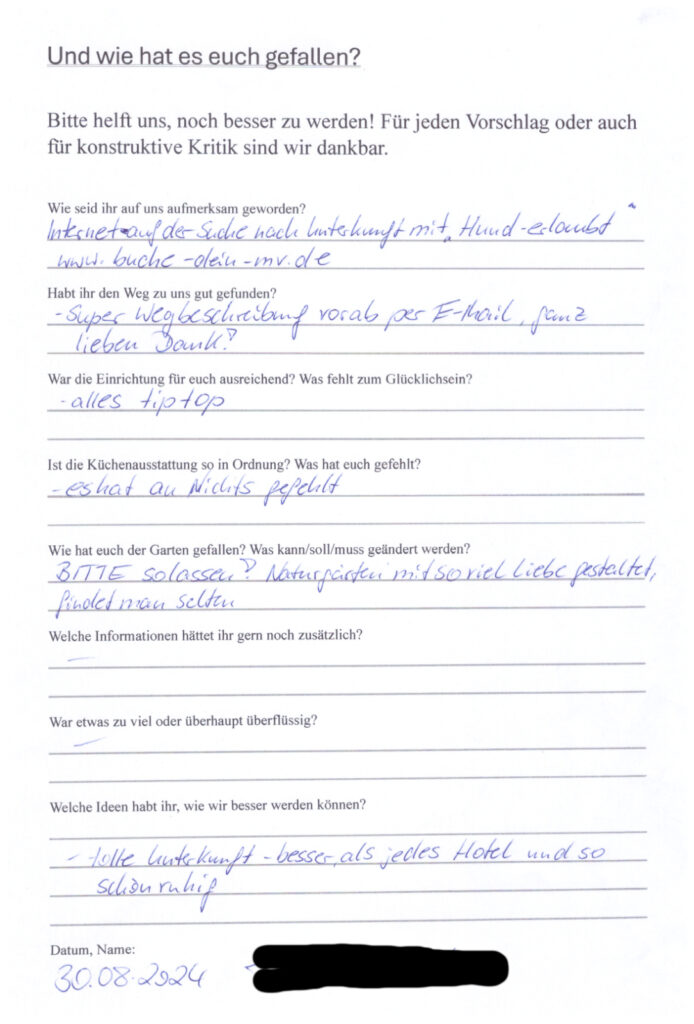 Und wie hat es euch gefallen?
Bitte helft uns, noch besser zu werden! Für jeden Vorschlag oder auch
für konstruktive Kritik sind wir dankbar.
Wie seid ihr auf uns aufmerksam geworden?
Internet auf der Suche nach Unterkunft mit „Hund-erlaubt“
www.buche-dein-mv.de
Habt ihr den Weg zu uns gut gefunden?
- Super Wegbeschreibung vorab per E-Mail, ganz
lieben Dank!
War die Einrichtung für euch ausreichend? Was fehlt zum Glücklichsein?
- alles tiptop
Ist die Küchenausstattung so in Ordnung? Was hat euch gefehlt?
- es hat an Nichts gefehlt
Wie hat euch der Garten gefallen? Was kann/soll/muss geändert werden?
BITTE so lassen! Naturgärten mit so viel Liebe gestaltet,
findet man selten
Welche Informationen hättet ihr gern noch zusätzlich?
—
War etwas zu viel oder überhaupt überflüssig?
—
Welche Ideen habt ihr, wie wir besser werden können?
- tolle Unterkunft - besser, als jedes Hotel und so
schön ruhig
Datum, Name:
30.08.2024